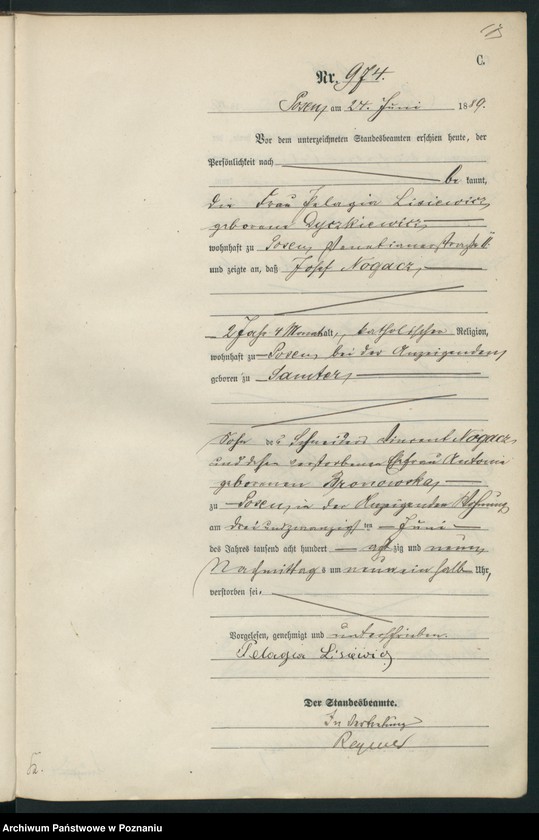 C.
Nr. 974.
Posen, am 24. Juni 1889.
Vor dem unterzeichneten Standesbeamten erschien heute, der
Persönlichkeit nach
be kannt,
die Frau Pelagia Lisiewicz,
geborene Dyczkiewicz
wohnhaft zu Posen,
und zeigte an, daß Josef Nogacz,
2 Jahr 4 Monat alt, katholischer Religion,
wohnhaft zu Posen, bei der Anzeigenden,
geboren zu Samter,
Sohn des Schneiders Vincent Nogacz,
und dessen verstorbenen Ehefrau Antonie
geborenen Bronowska,
zu Posen, in der Anzeigenden Wohnung
am drei und zwanzigsten Juni
des Jahres tausend acht hundert acht zig und neun,
Nachmittags um neun ein halb Uhr,
verstorben sei.
Vorgelesen, genehmigt und unterschrieben.
Pelagia Lisiewicz
Der Standesbeamte.
In Vertretung
Archiwum Państwowe w Poznaniu